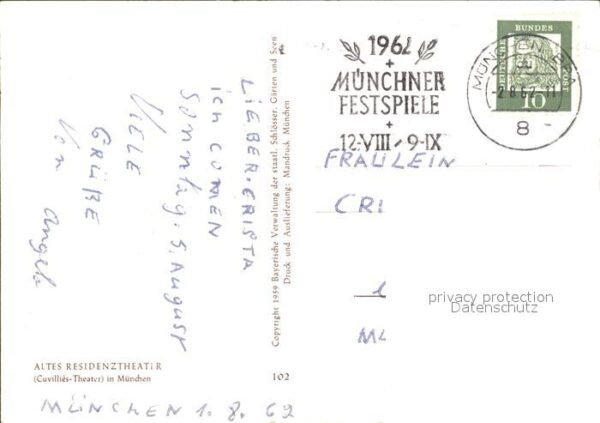 LIEBER. CRISTA
ICH COMEN
SONNTAG. 5. AUGUST
VIELE
GRÜßE
VON
Angela
ALTES RESIDENZTHEATER
(Cuvilliés-Theater) in München
MÜNCHEN 1. 8. 62
Copyright 1959 Bayerische Verwaltung der staatl. Schlösser, Gärten und Seen
Druck und Auslieferung: Mandruck München
102
1962
MÜNCHNER
FESTSPIELE
12·VIII - 9·IX
DEUTSCHE BUNDESPOST
10
MÜNCHEN
-2.8.62
8
FRAÜLEIN
CRI
1
privacy protection
Datenschutz